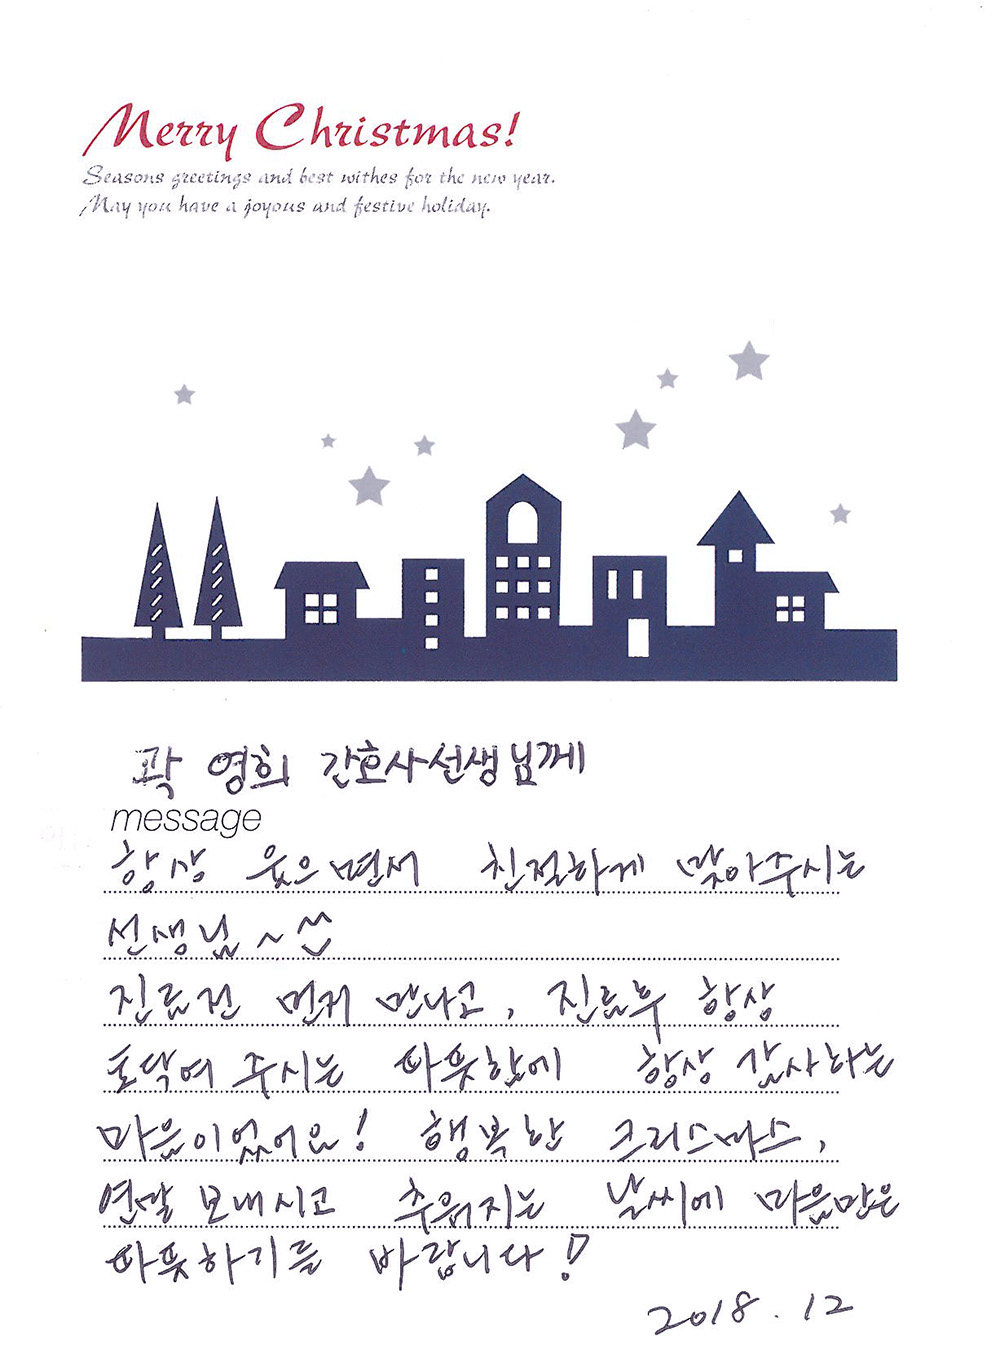 Merry Christmas!
Seasons greetings and best withes for the new year.
May you have a joyous and festive holiday.
곽 영희 간호사선생님께
message
항상 웃으면서 친절하게 맞아주시는
선생님~ ^^
진료전 먼저 만나고, 진료후 항상
토닥여 주시는 따뜻함에 항상 감사하는
마음이었어요! 행복한 크리스마스,
연말 보내시고 추워지는 날씨에 마음만은
따뜻하기를 바랍니다!
2018. 12